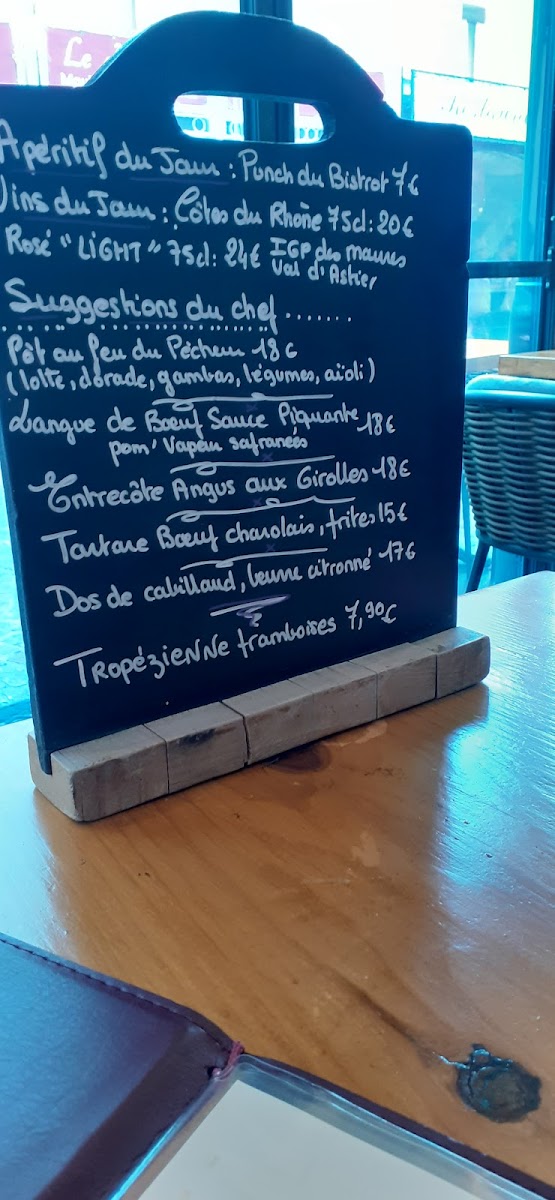 Le
Apéritif du Jour : Punch du Bistrot 7€
Vins du Jour : Côtes du Rhône 75cl : 20€
Rosé "LIGHT" 75cl : 24€ IGP des maures
Val d'Astier
Suggestions du chef .......
Pôt au feu du Pêcheur 18€
(lotte, dorade, gambas, légumes, aïoli)
Langue de Bœuf Sauce Piquante 18€
pom' Vapeur safranées
Entrecôte Angus aux Girolles 18€
Tartare Bœuf charolais, frites 15€
Dos de cabillaud, beurre citronné 17€
Tropézienne framboises 7,90€